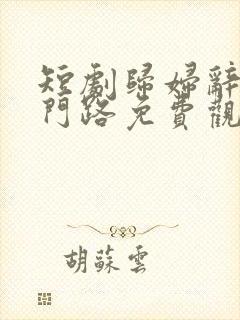 短劇歸婦辭
門路免費觀
胡蘇雲